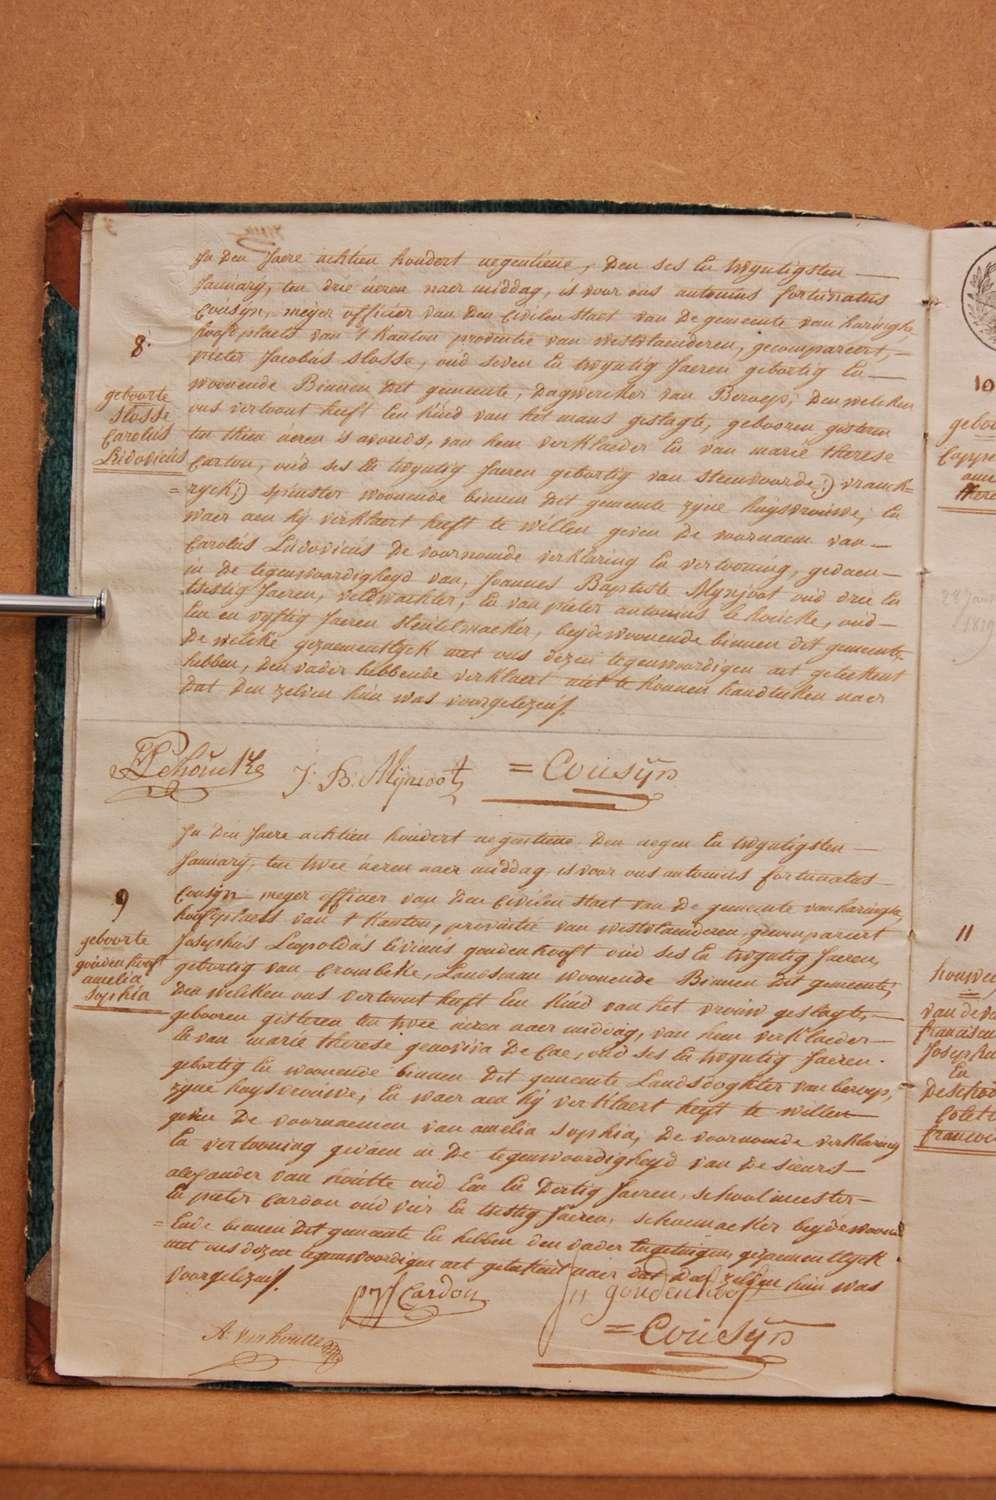 8.
geboorte
Slosse
Carolus
Ludovicus
In den Jaere achtien hondert negentiene, den ses en twyntigsten
January, ten drie ueren naer middag, is voor ons antonius fortunatus
Cousyn, meyer officier van den Civilen staet van de gemeente van haringhe,
hoofplaets van 't kanton provintie van westvlaenderen, gecompareert,
pieter Jacobus Slosse, oud seven en twyntig Jaeren gebortig en
woonende Binnen dit gemeente, dagwerker van Beroep, den welcken
ons vertoont heeft een kind van het mans geslagte, gebooren gisteren
ten thien ueren s avonds, van hem verklaeder en van marie therese
Carton, oud ses en twyntig Jaeren gebortig van Steenvoorde,) vranck=
=ryck,) spinster woonende binnen dit gemeente zyne huysvrouwe, en
waer aen hy verklaert heeft te willen geven de voornaem van
Carolus Ludovicus de voornoemde verklaring en vertooning, gedaen
in de tegenwoordigheyd van, Joannes Baptiste Mynjoot oud drie en
tsestig Jaeren, veldwachter, en van pieter antonius le houcke, oud
een en vyftig Jaeren sleutelmaeker, beyde woonende binnen dit gemeente,
de welcke gezaementlyck met ons dezen tegenwoordigen act geteekent
hebben, den vader hebbende verklaert niet te konnen handteeken naer
dat den zelven hun was voorgelezen/.
J: B: Mynjoot
= Cousyn
9
geboorte
goudenhooft
amelia
Sophia
In den Jaere achtien hondert negentiene den negen en twyntigsten
January, ten twee ueren naer middag, is voor ons antonius fortunatus
Cousyn meyer officier van den Civilen staet van de gemeente van haringhe,
hoofplaets van 't kanton, provintie van westvlaenderen, gecompareert
Josephus Leopoldus Livinus goudenhooft oud ses en twyntig Jaeren,
gebortig van Crombeke, Landsman woonende Binnen dit gemeente,
den welcken ons vertoont heeft een kind van het vrouw geslagte,
gebooren gisteren ten twee ueren naer middag, van hem verklaeder
en van marie therese genoviva De Cae, oud ses en twyntig Jaeren
gebortig en woonende binnen dit gemeente Landsdoghter van beroep,
zyne huysvrouwe, en waer aen hy verklaert heeft te willen
geven de voornaemen van amelia Sophia, de voornoemde verklaring
en vertooning gedaen in de tegenwoordigheyd van de sieurs
alexander van houtte oud een en dertig Jaeren, schoolmeester
en pieter Cardon oud vier en tsestig Jaeren, schoemaeker beyde woon=
=ende binnen dit gemeente en hebben den vader en getuigen gezaementlyck
met ons dezen tegenwoordigen act geteekent naer dat den zelven hun was
voorgelezen/.
Cardon
goudenhooft
A. vanhoutte
= Cousyn
10
11
28 Janu
1819